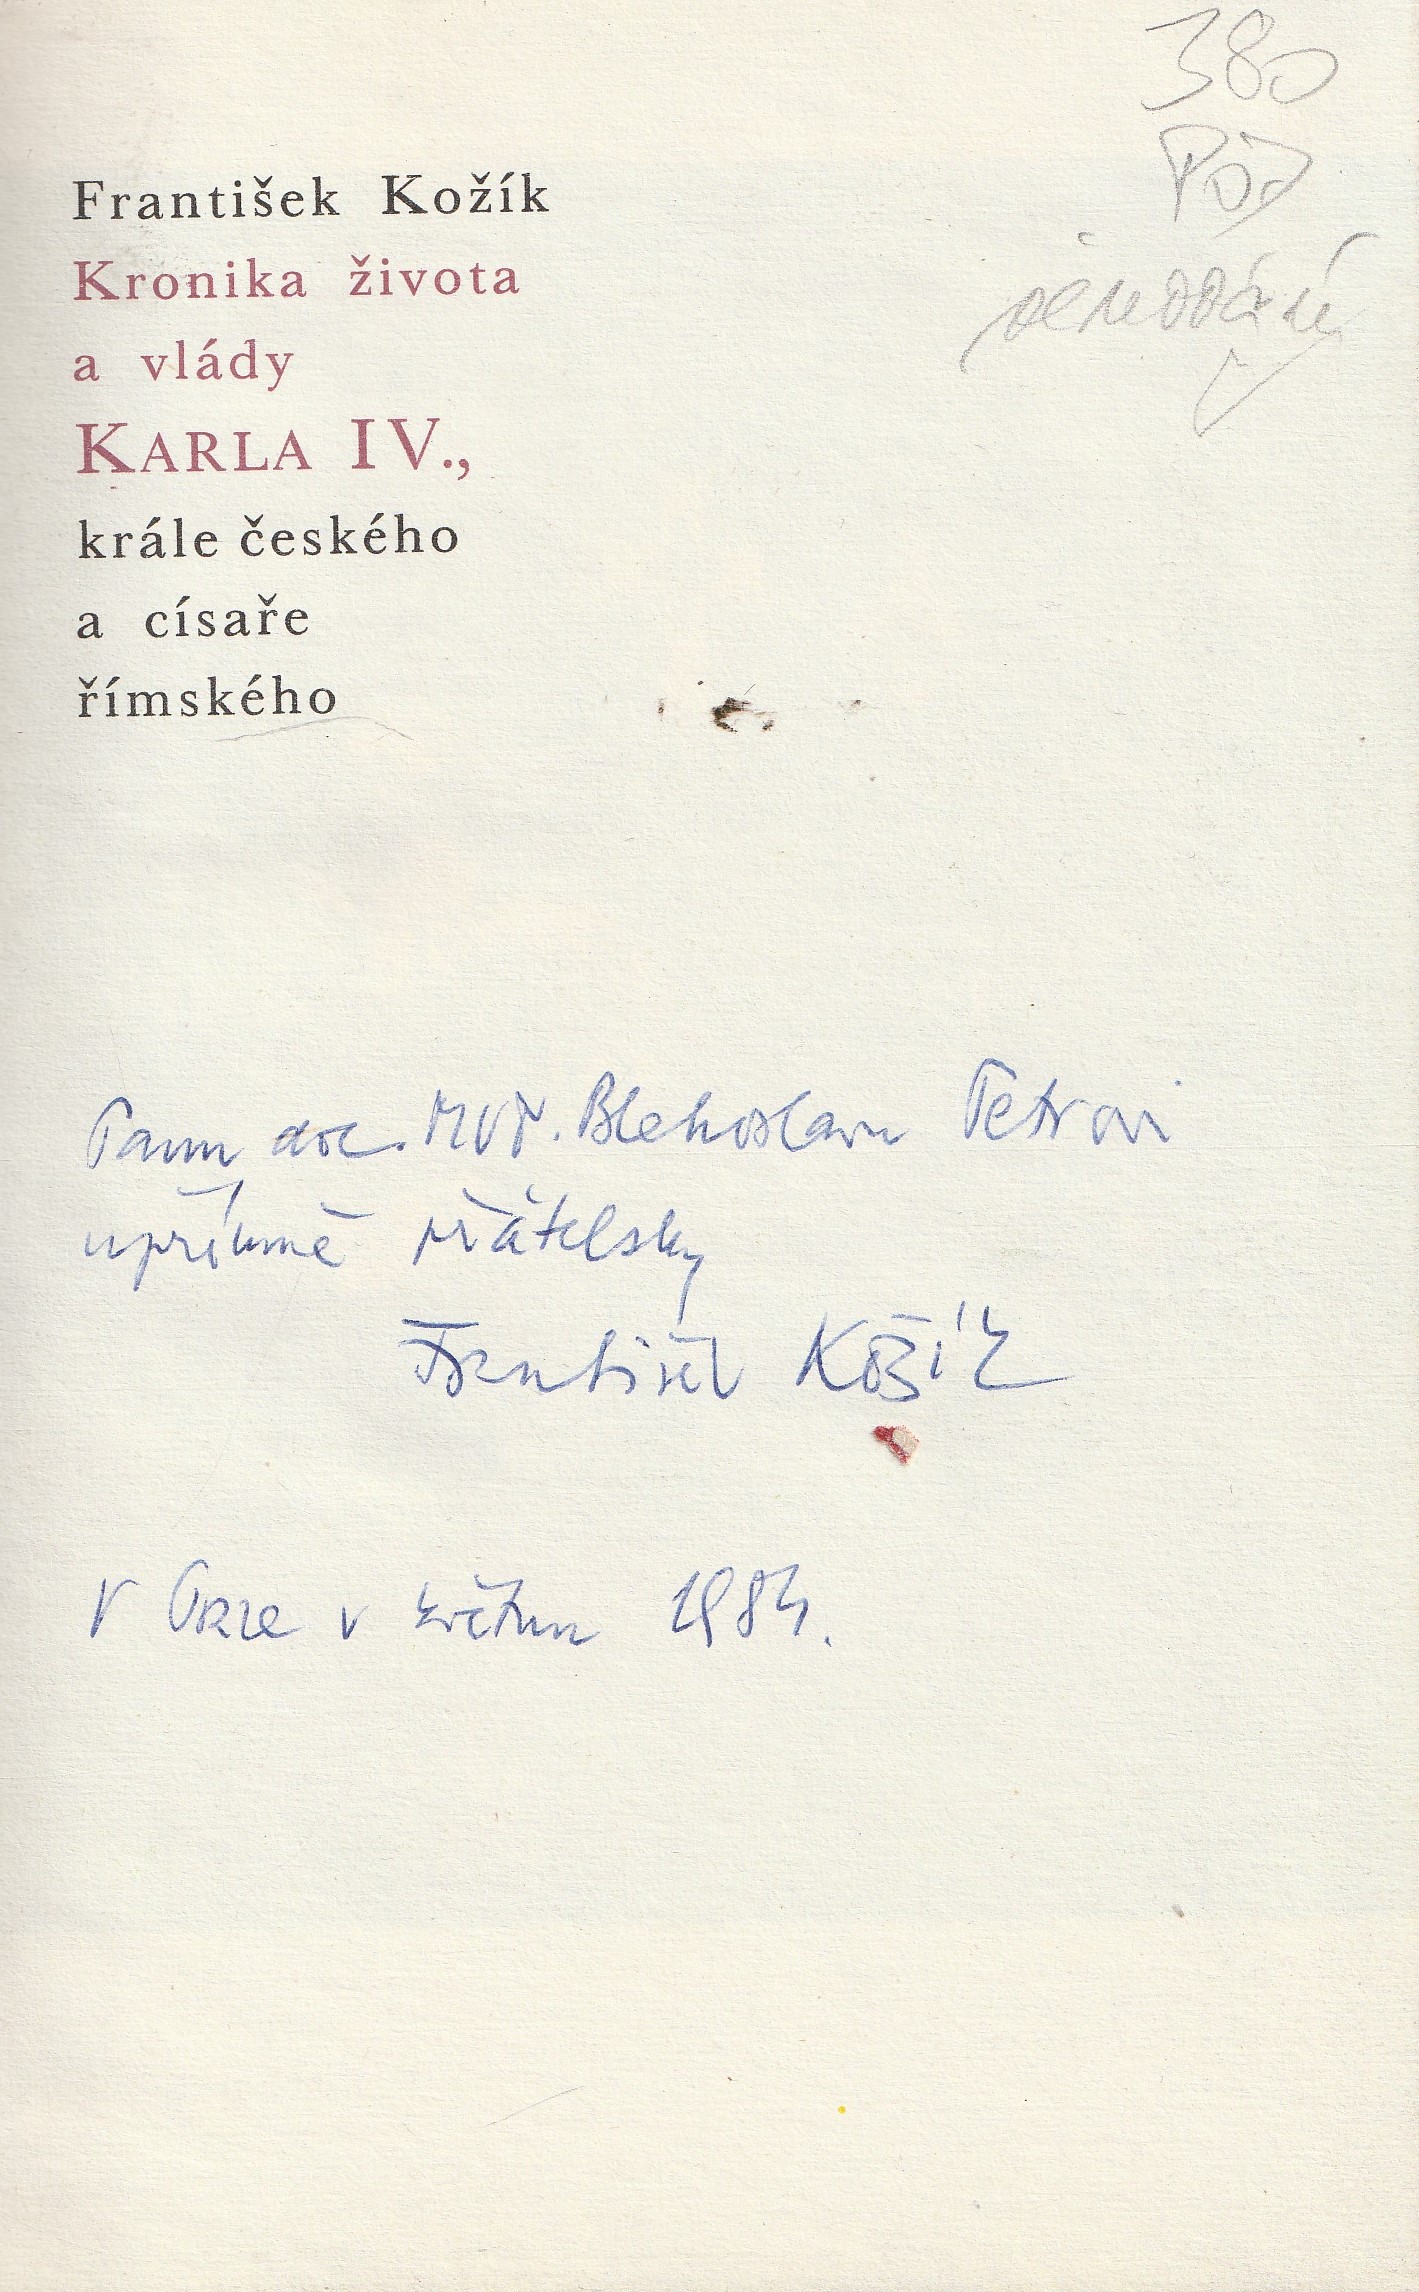 380
František Kožík
Kronika života
a vlády
KARLA IV.,
krále českého
a císaře
římského
Panu doc. Petrovi
upřímně přátelsky
František Kožík
V Praze v květnu 1984.